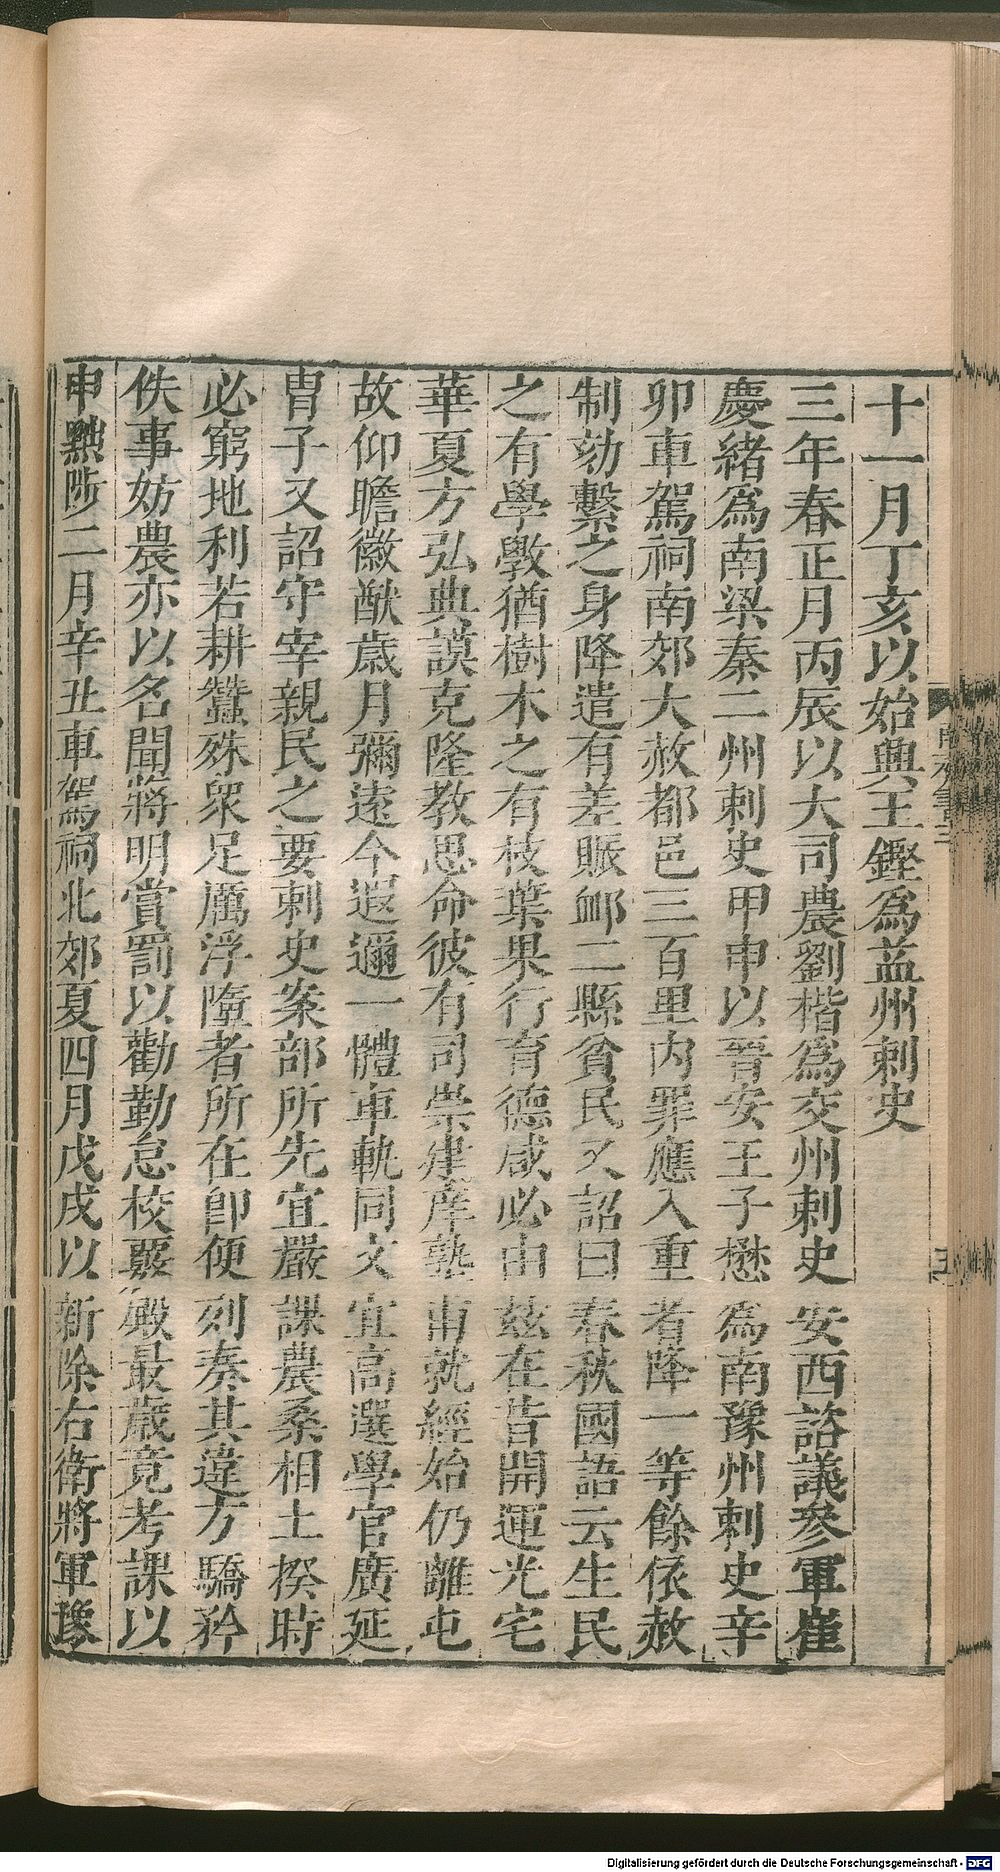 十一月丁亥以始興王鏗爲益州刺史
三年春正月丙辰以大司農劉楷爲交州刺史安西諮議參軍崔
慶緒爲南梁秦二州刺史甲申以晉安王子懋爲南豫州刺史辛
卯車駕祠南郊大赦都邑三百里内罪應入重者降一等餘依赦
制劾繫之身降遣有差賑䘏二縣貧民又詔曰春秋國語云生民
之有學斅猶樹木之有枝葉果行育德咸必由兹在昔開運光宅
華夏方弘典謨克隆教思命彼有司崇建庠塾甫就經始仍離屯
故仰瞻徽猷歲月彌遠今遐邇一體車軌同文宜高選學官廣延
胄子又詔守宰親民之要刺史案部所先宜嚴課農桑相土揆時
必窮地利若耕蠶殊衆足厲浮墮者所在即便列奏其違方驕矜
佚事妨農亦以名聞將明賞罰以勸勤怠校覈殿最歲竟考課以
申黜陟二月辛丑車駕祠北郊夏四月戊戌以新除右衛將軍豫
五
Digitalisierung gefördert durch die Deutsche Forschungsgemeinschaft - DFG